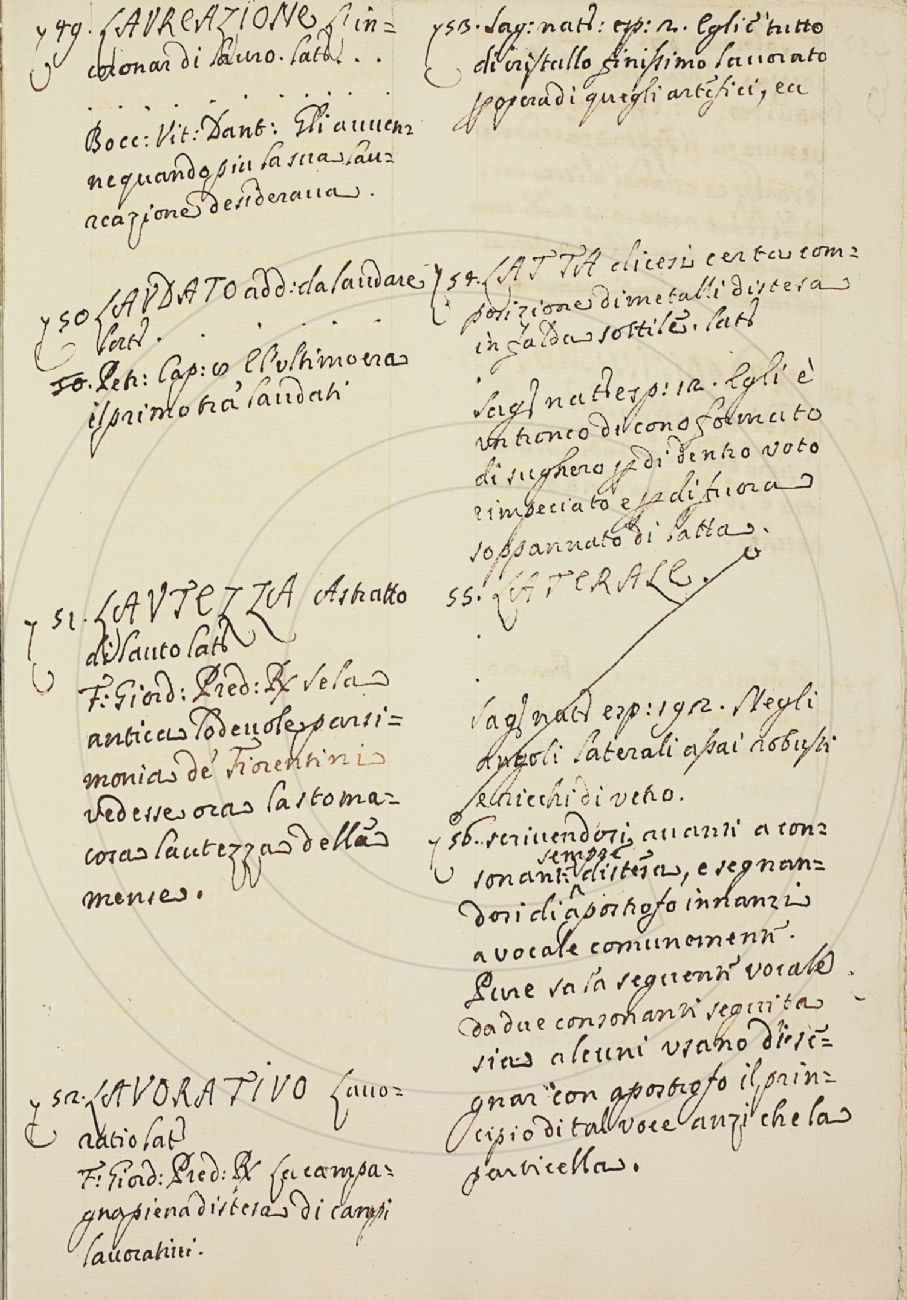 49. LAUREAZIONE L'in=
coronar di lauro. lat. . .
Bocc: Vit: Dant: Gli avven=
ne quando piu la sua lau=
reazione desiderava.
50 LAUDATO add: da laudare
lat.
50. Petr: Cap: 10 E l'ultimo era
il primo tra' laudati
51. LAUTEZZA Astratto
di lauto lat.
F: Giord: Pred: R se la
antica lodevole parsi=
monia de' Fiorentini
vedesse ora la stoma=
cosa lautezza delle
mense.
52. LAVORATIVO Lavo=
ratio lat.
F: Giord: Pred: R La campa=
gna piena distesa di campi
lavorativi.
53. Sag: nat: esp: 2. Egli è tutto
di cristallo finissimo lavorato
p opera di quegli artefici, ec
54. LATTA dicesi certa com=
posizione di metalli distesa
in falda sottile. lat.
Sag: nat: esp: 12. Egli è
un tronco di cono formato
di sughero p di dentro voto
e impeciato e p di fuora
soppannato di latta.
55. LATERALE.
Sag: nat: esp: 192. Negli
angoli laterali assai robusti
e nicchi di vetro.
56. scrivendosi avanti a con=
sempre
sonanti distesa, e segnan=
dosi di apostrofo innanzi
a vocale comunement.
Pure sa la seguente vocale
da due consonanti seguita
sia alcuni usano di se=
gnar con apostrofo il prin=
cipio di tal voce anzi che la
particella.